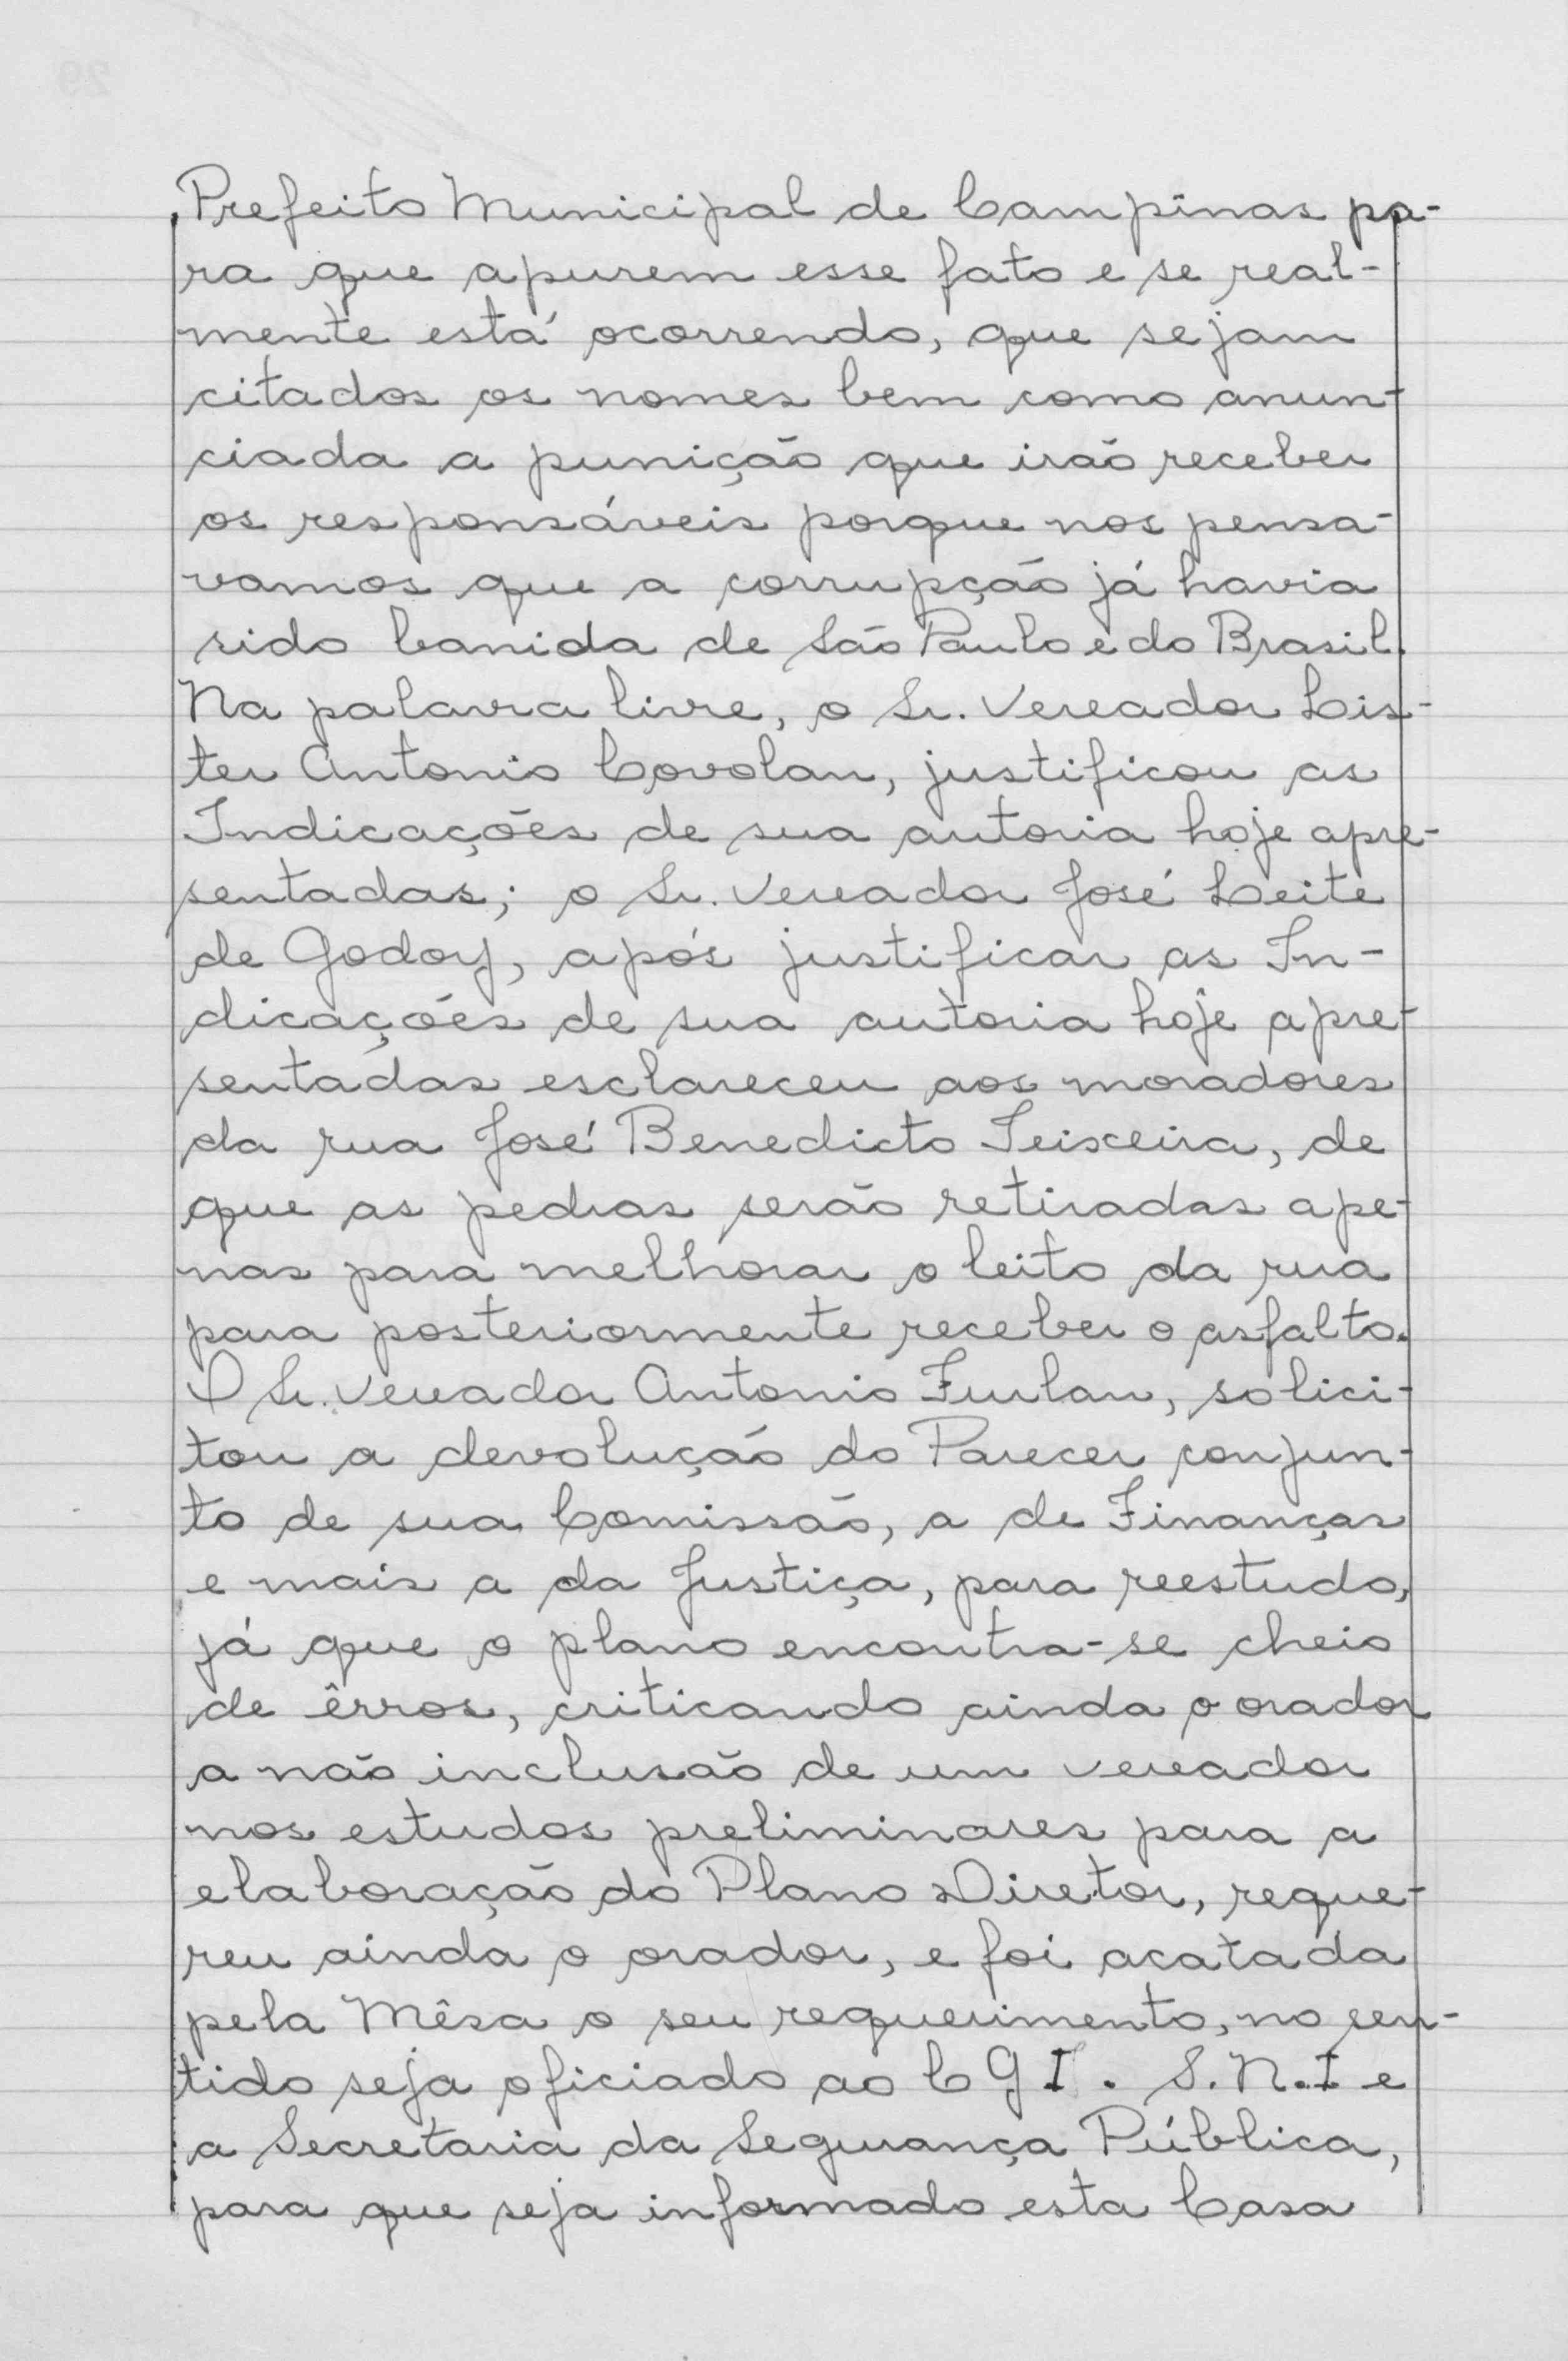 Prefeito Municipal de Campinas pa-
ra que apurem esse fato e se real-
mente está ocorrendo, que sejam
citados os nomes bem como anun-
ciada a punição que irão receber
os responsáveis porque nos pensa-
vamos que a corrupção já havia
sido banida de São Paulo e do Brasil.
Na palavra livre, o Sr. Vereador Lis-
ter Antonio Covolan, justificou as
Indicações de sua autoria hoje apre-
sentadas; o Sr. Vereador José Leite
de Godoy, após justificar as In-
dicações de sua autoria hoje apre-
sentadas esclareceu aos moradores
da rua José Benedicto Teixeira, de
que as pedras serão retiradas ape-
nas para melhorar o leito da rua
para posteriormente receber o asfalto.
O Sr. Vereador Antonio Furlan, solici-
tou a devolução do Parecer conjun-
to de sua Comissão, a de Finanças
e mais a da Justiça, para reestudo,
já que o plano encontra-se cheio
de êrros, criticando ainda o orador
a não inclusão de um vereador
nos estudos preliminares para a
elaboração do Plano Diretor, reque-
reu ainda o orador, e foi acatada
pela Mêsa o seu requerimento, no sen-
tido seja oficiado ao C G I. S.N.I e
a Secretaria da Segurança Pública,
para que seja informado esta Casa